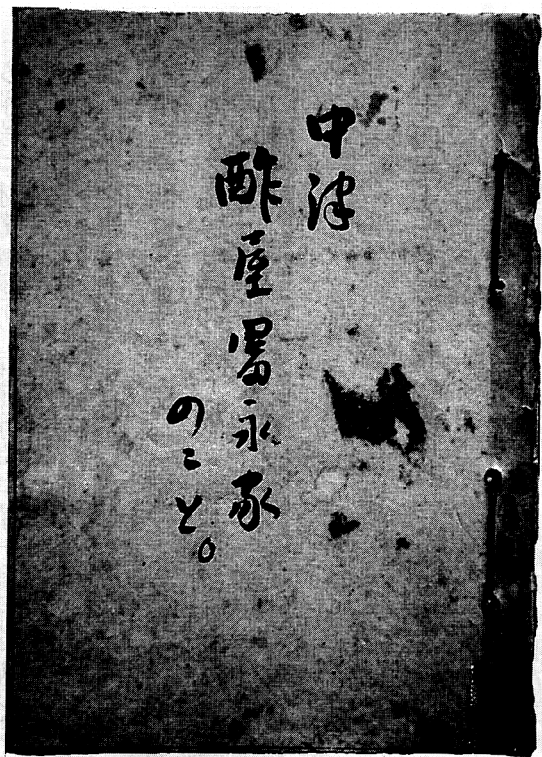 中津
酢屋冨永家
のこと。